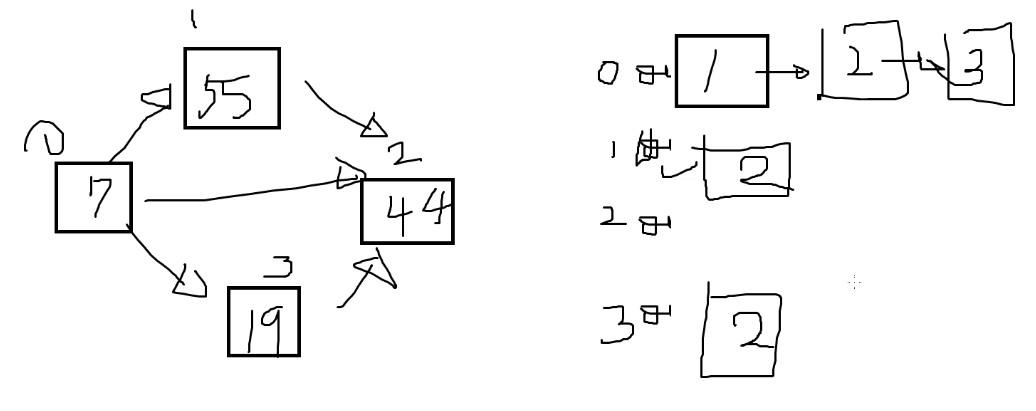 1
55
0
7
2
44
3
19
0 1 2 3
1 2
2
3 2